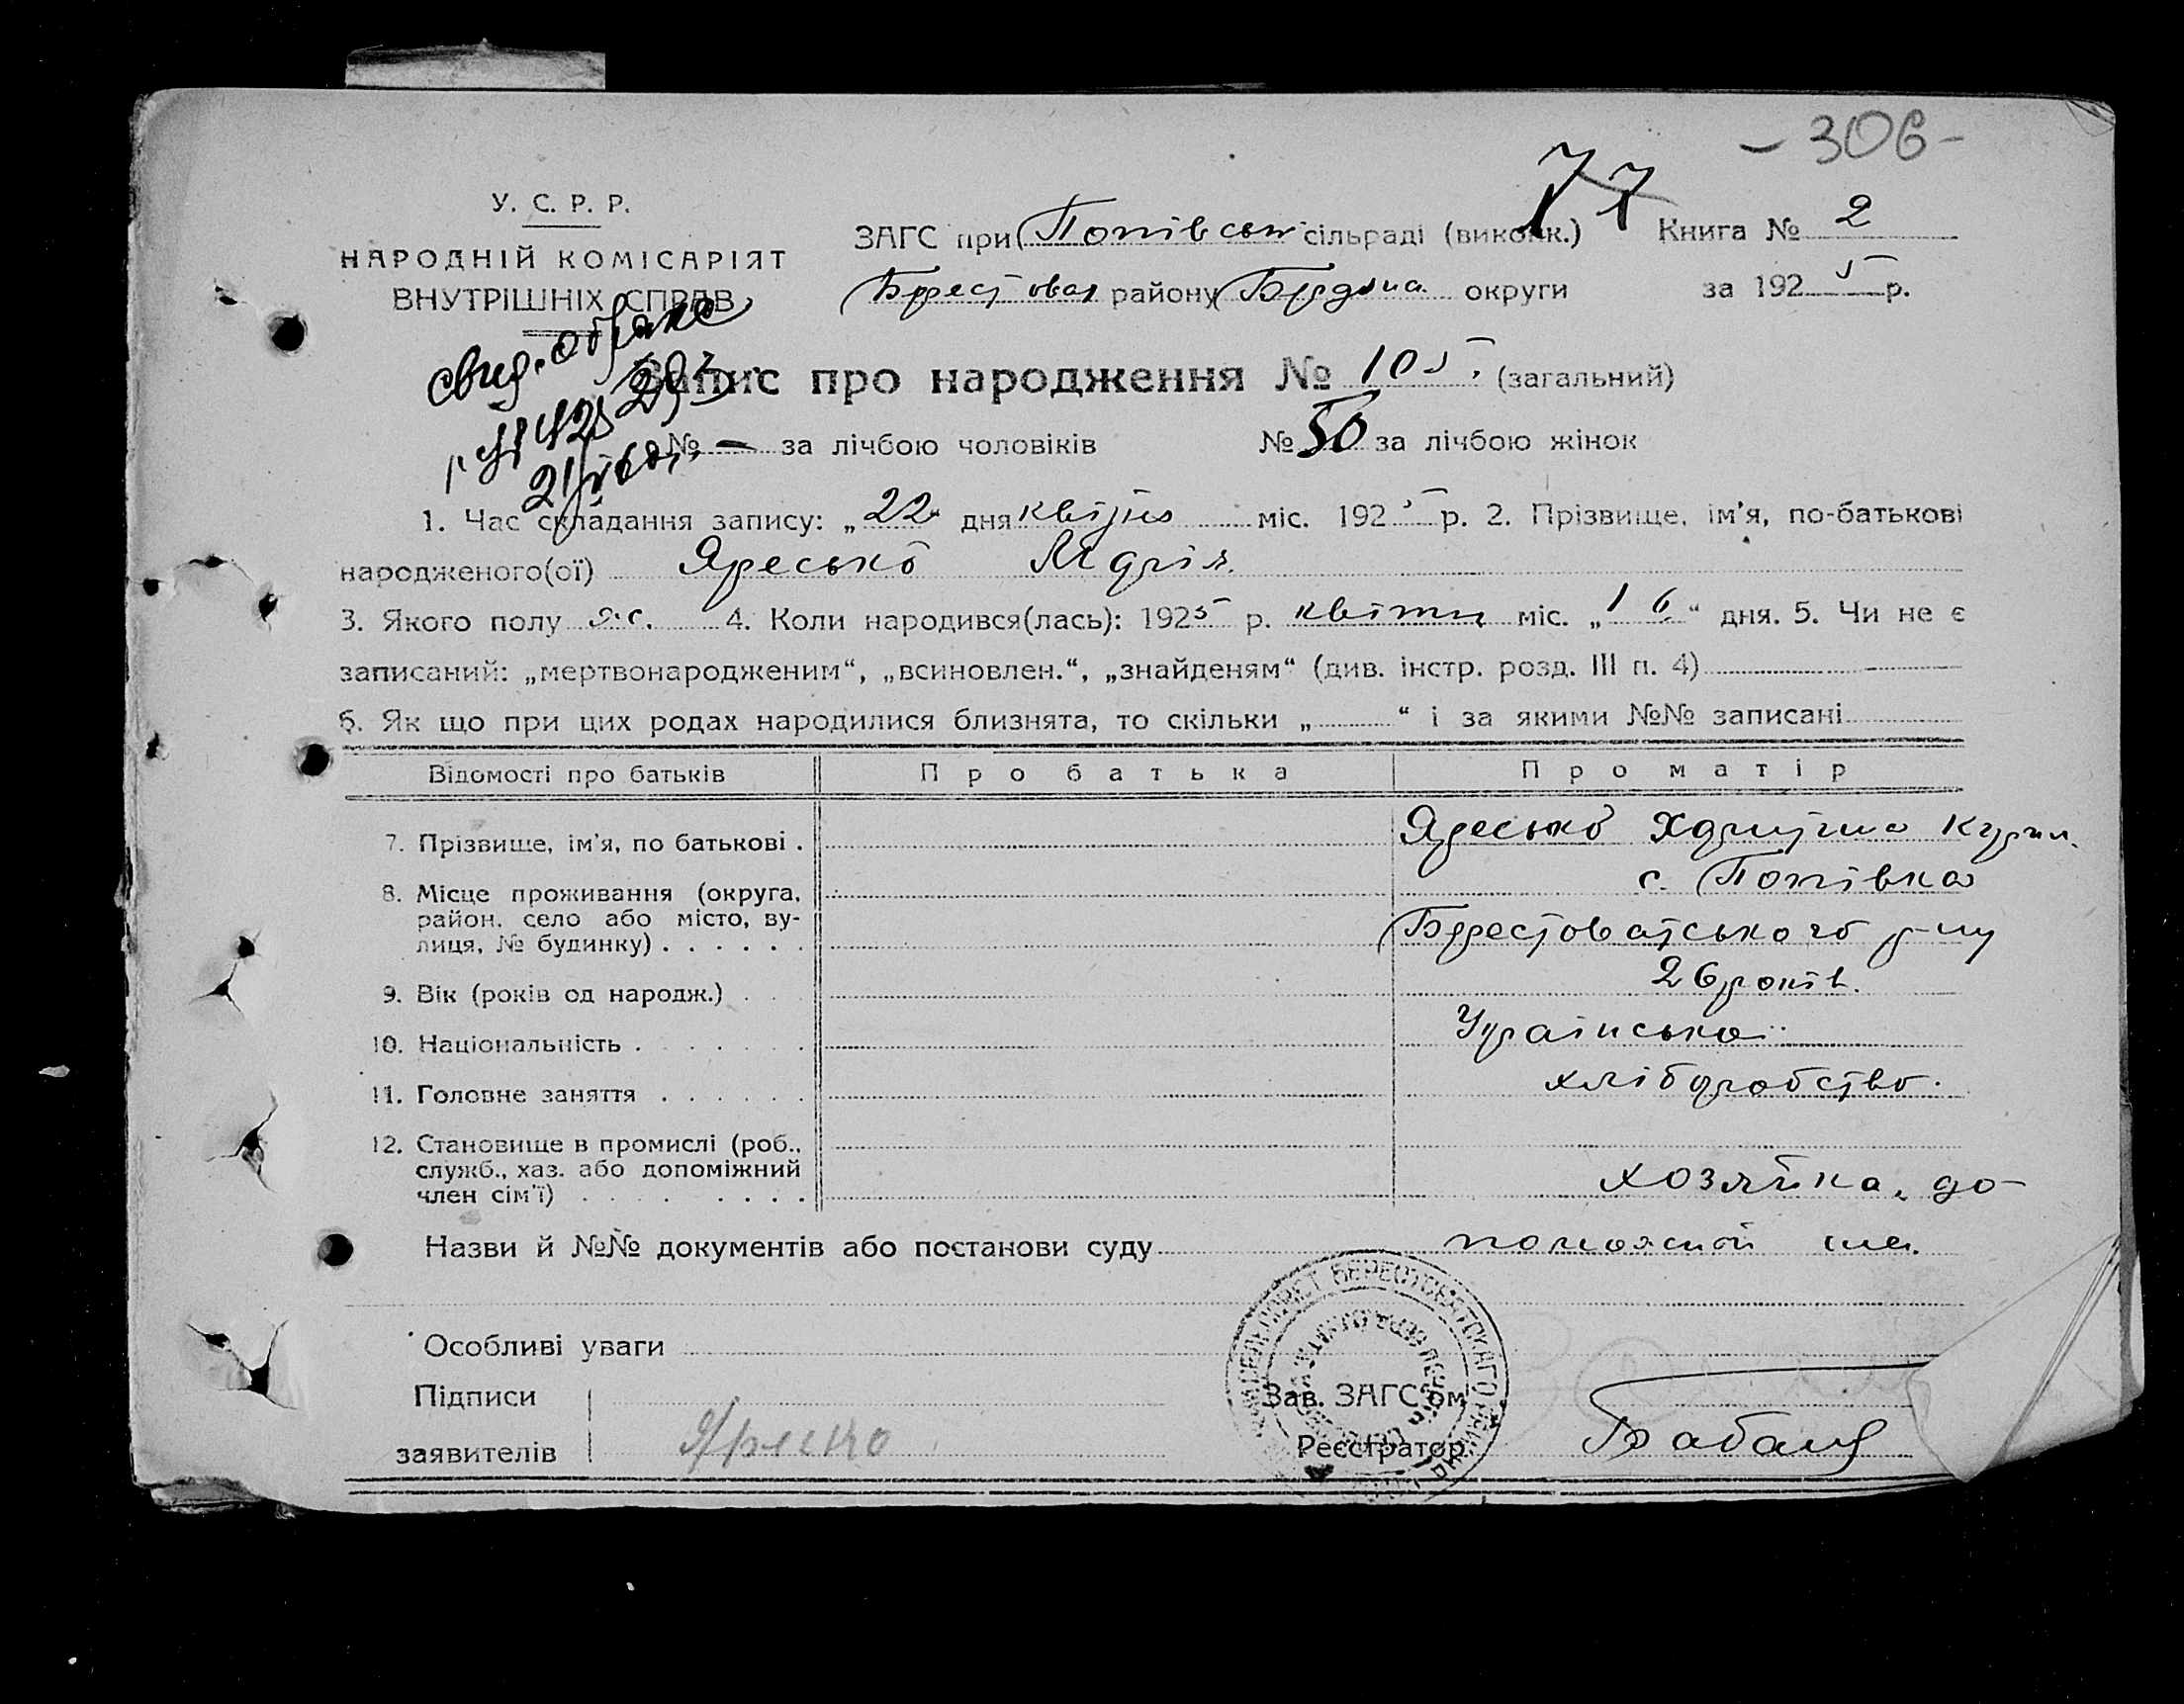 - 306 -
77
У. С. Р. Р.
НАРОДНІЙ КОМІСАРІЯТ
ВНУТРІШНІХ СПРАВ
ЗАГС при Попівськ сільраді (викон.к.) Книга № 2
Берестовая району Бердянс округи за 1925 р.
Запис про народження № 105. (загальний)
№ — за лічбою чоловіків № 50 за лічбою жінок
1. Час складання запису: „22 дня квітня міс. 1925 р. 2. Прізвище, ім’я, по-батькові
народженого(ої) Яресько Марія.
3. Якого полу ж. 4. Коли народився(лась): 1925 р. квітня міс. „16“ дня. 5. Чи не є
записаний: „мертвонародженим“, „всиновлен.“, „знайденям“ (див. інстр. розд. III п. 4)
6. Як що при цих родах народилися близнята, то скільки „ “ і за якими №№ записані
Відомості про батьків Про батька Про матір
7. Прізвище, ім’я, по батькові . Яресько Харитина Курил.
8. Місце проживання (округа, с. Попівка
район, село або місто, ву-
лиця, № будинку) . . . . . . Берестоватського р-ну
9. Вік (років од народж.) . . 26 років.
10. Національність . . . . . . . Українська
11. Головне заняття . . . . . . хліборобство.
12. Становище в промислі (роб.,
служб., хаз. або допоміжний
член сім’ї) . . . . . . . . хозяйка, до-
Назви й №№ документів або постанови суду
Особливі уваги
Підписи Зав. ЗАГС’ом
заявителів Яресько Реєстратор Бабан